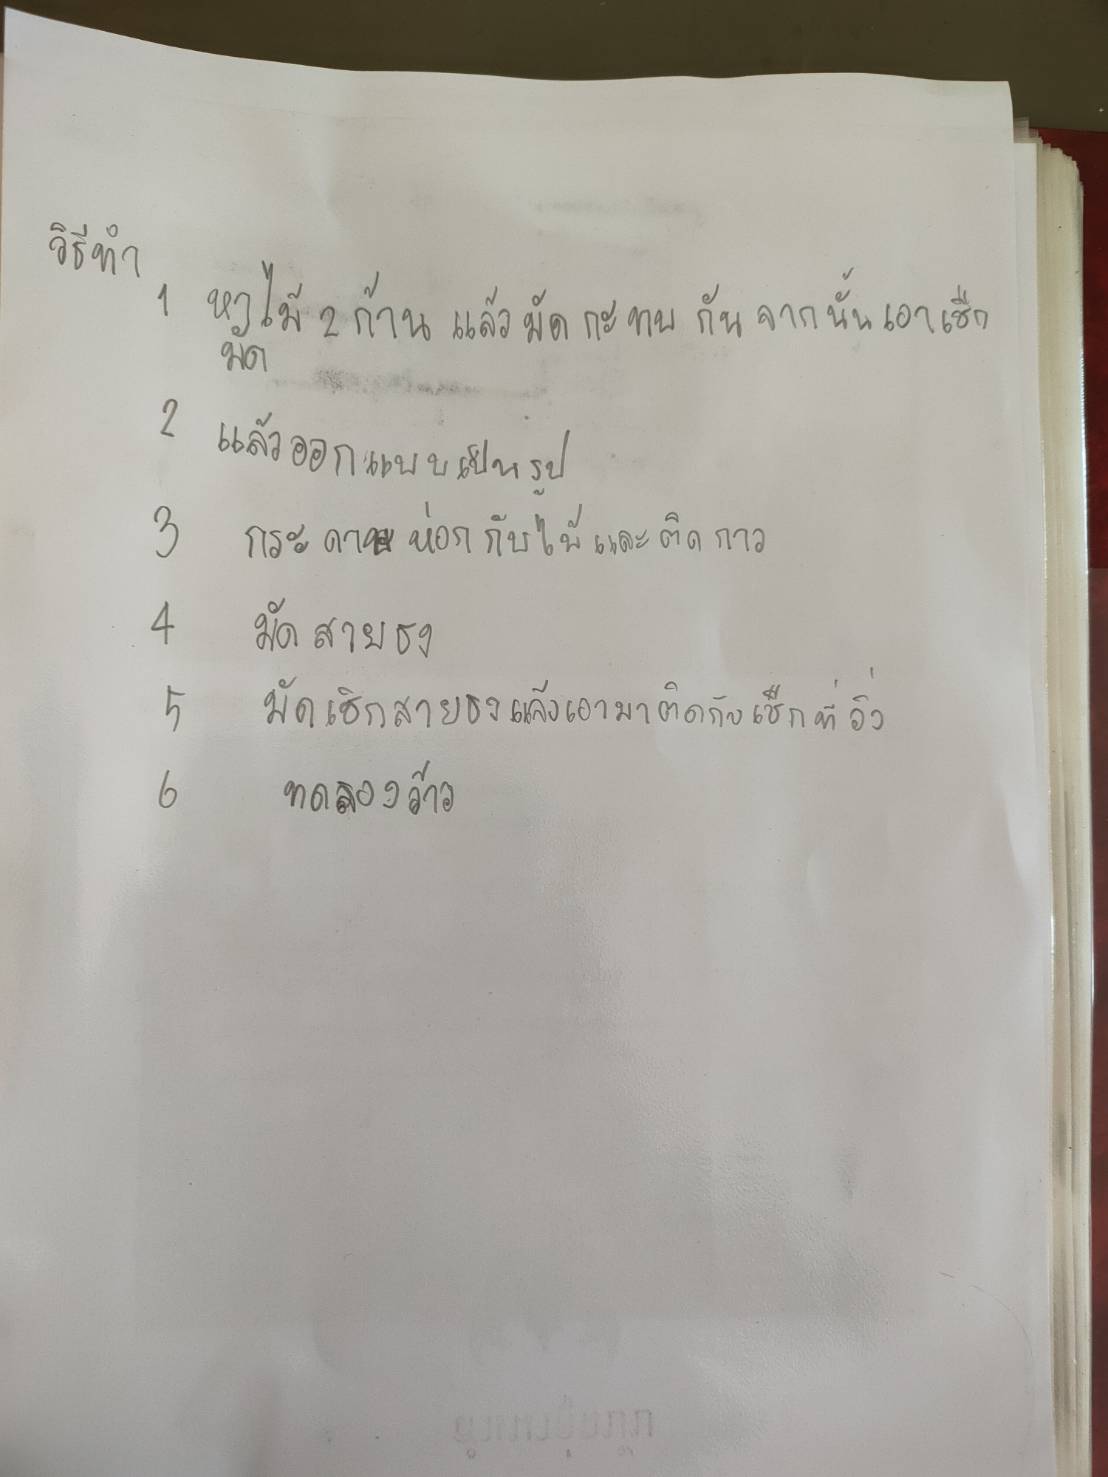 วิธีทำ
1 หาไม้ 2 ก้าน แล้ว มัด กะ ทบ กัน จาก นั้น เอา เชือก
มัด
2 แล้วออกแบบเป็นรูป
3 กระดาษ ห่อก กับไม้ และ ติด กาว
4 มัด สาย ธง
5 มัด เชิก สาย ธง แล้วเอามาติดกับ เชือก ที่ วิ่ง
6 ทดลองว้าว